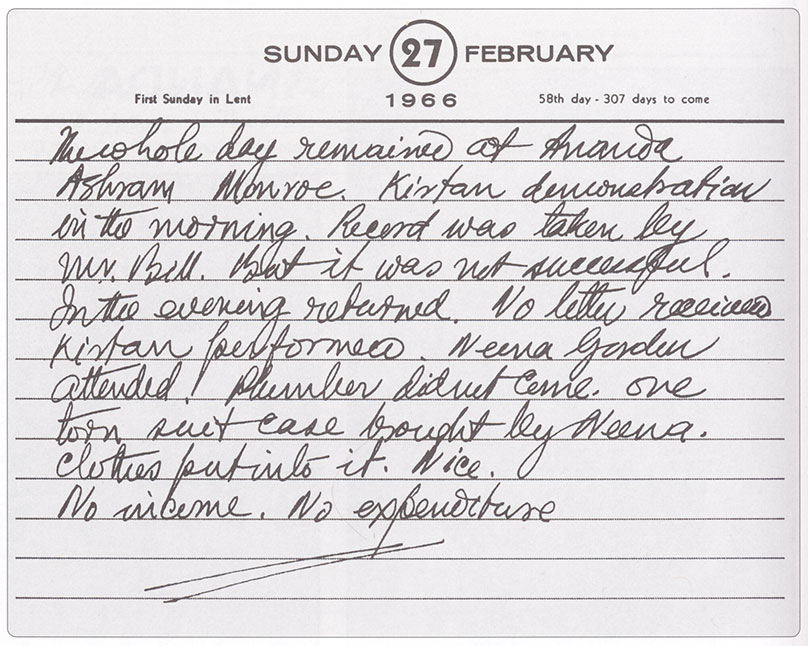 SUNDAY 27 FEBRUARY
First Sunday in Lent 1966 58th day - 307 days to come
The whole day remained at Ananda
Ashram Monroe. Kirtan demonstration
in the morning. Record was taken by
Mr. Bill. But it was not successful.
In the evening returned. No letter received
Kirtan performed. Neena Gorden
attended! Plumber did not come. one
torn suit case brought by Neena.
Clothes put into it. Nice.
No income. No expenditure